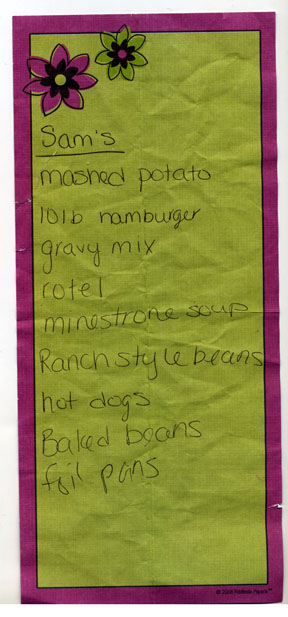 Sam's
mashed potato
10lb hamburger
gravy mix
rotel
minestrone soup
Ranch style beans
hot dogs
Baked beans
foil pans